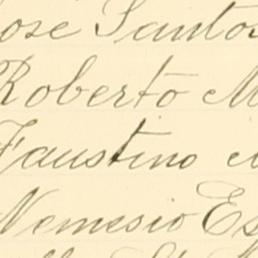 José Santos
Roberto M
Faustino
Nemesio Es